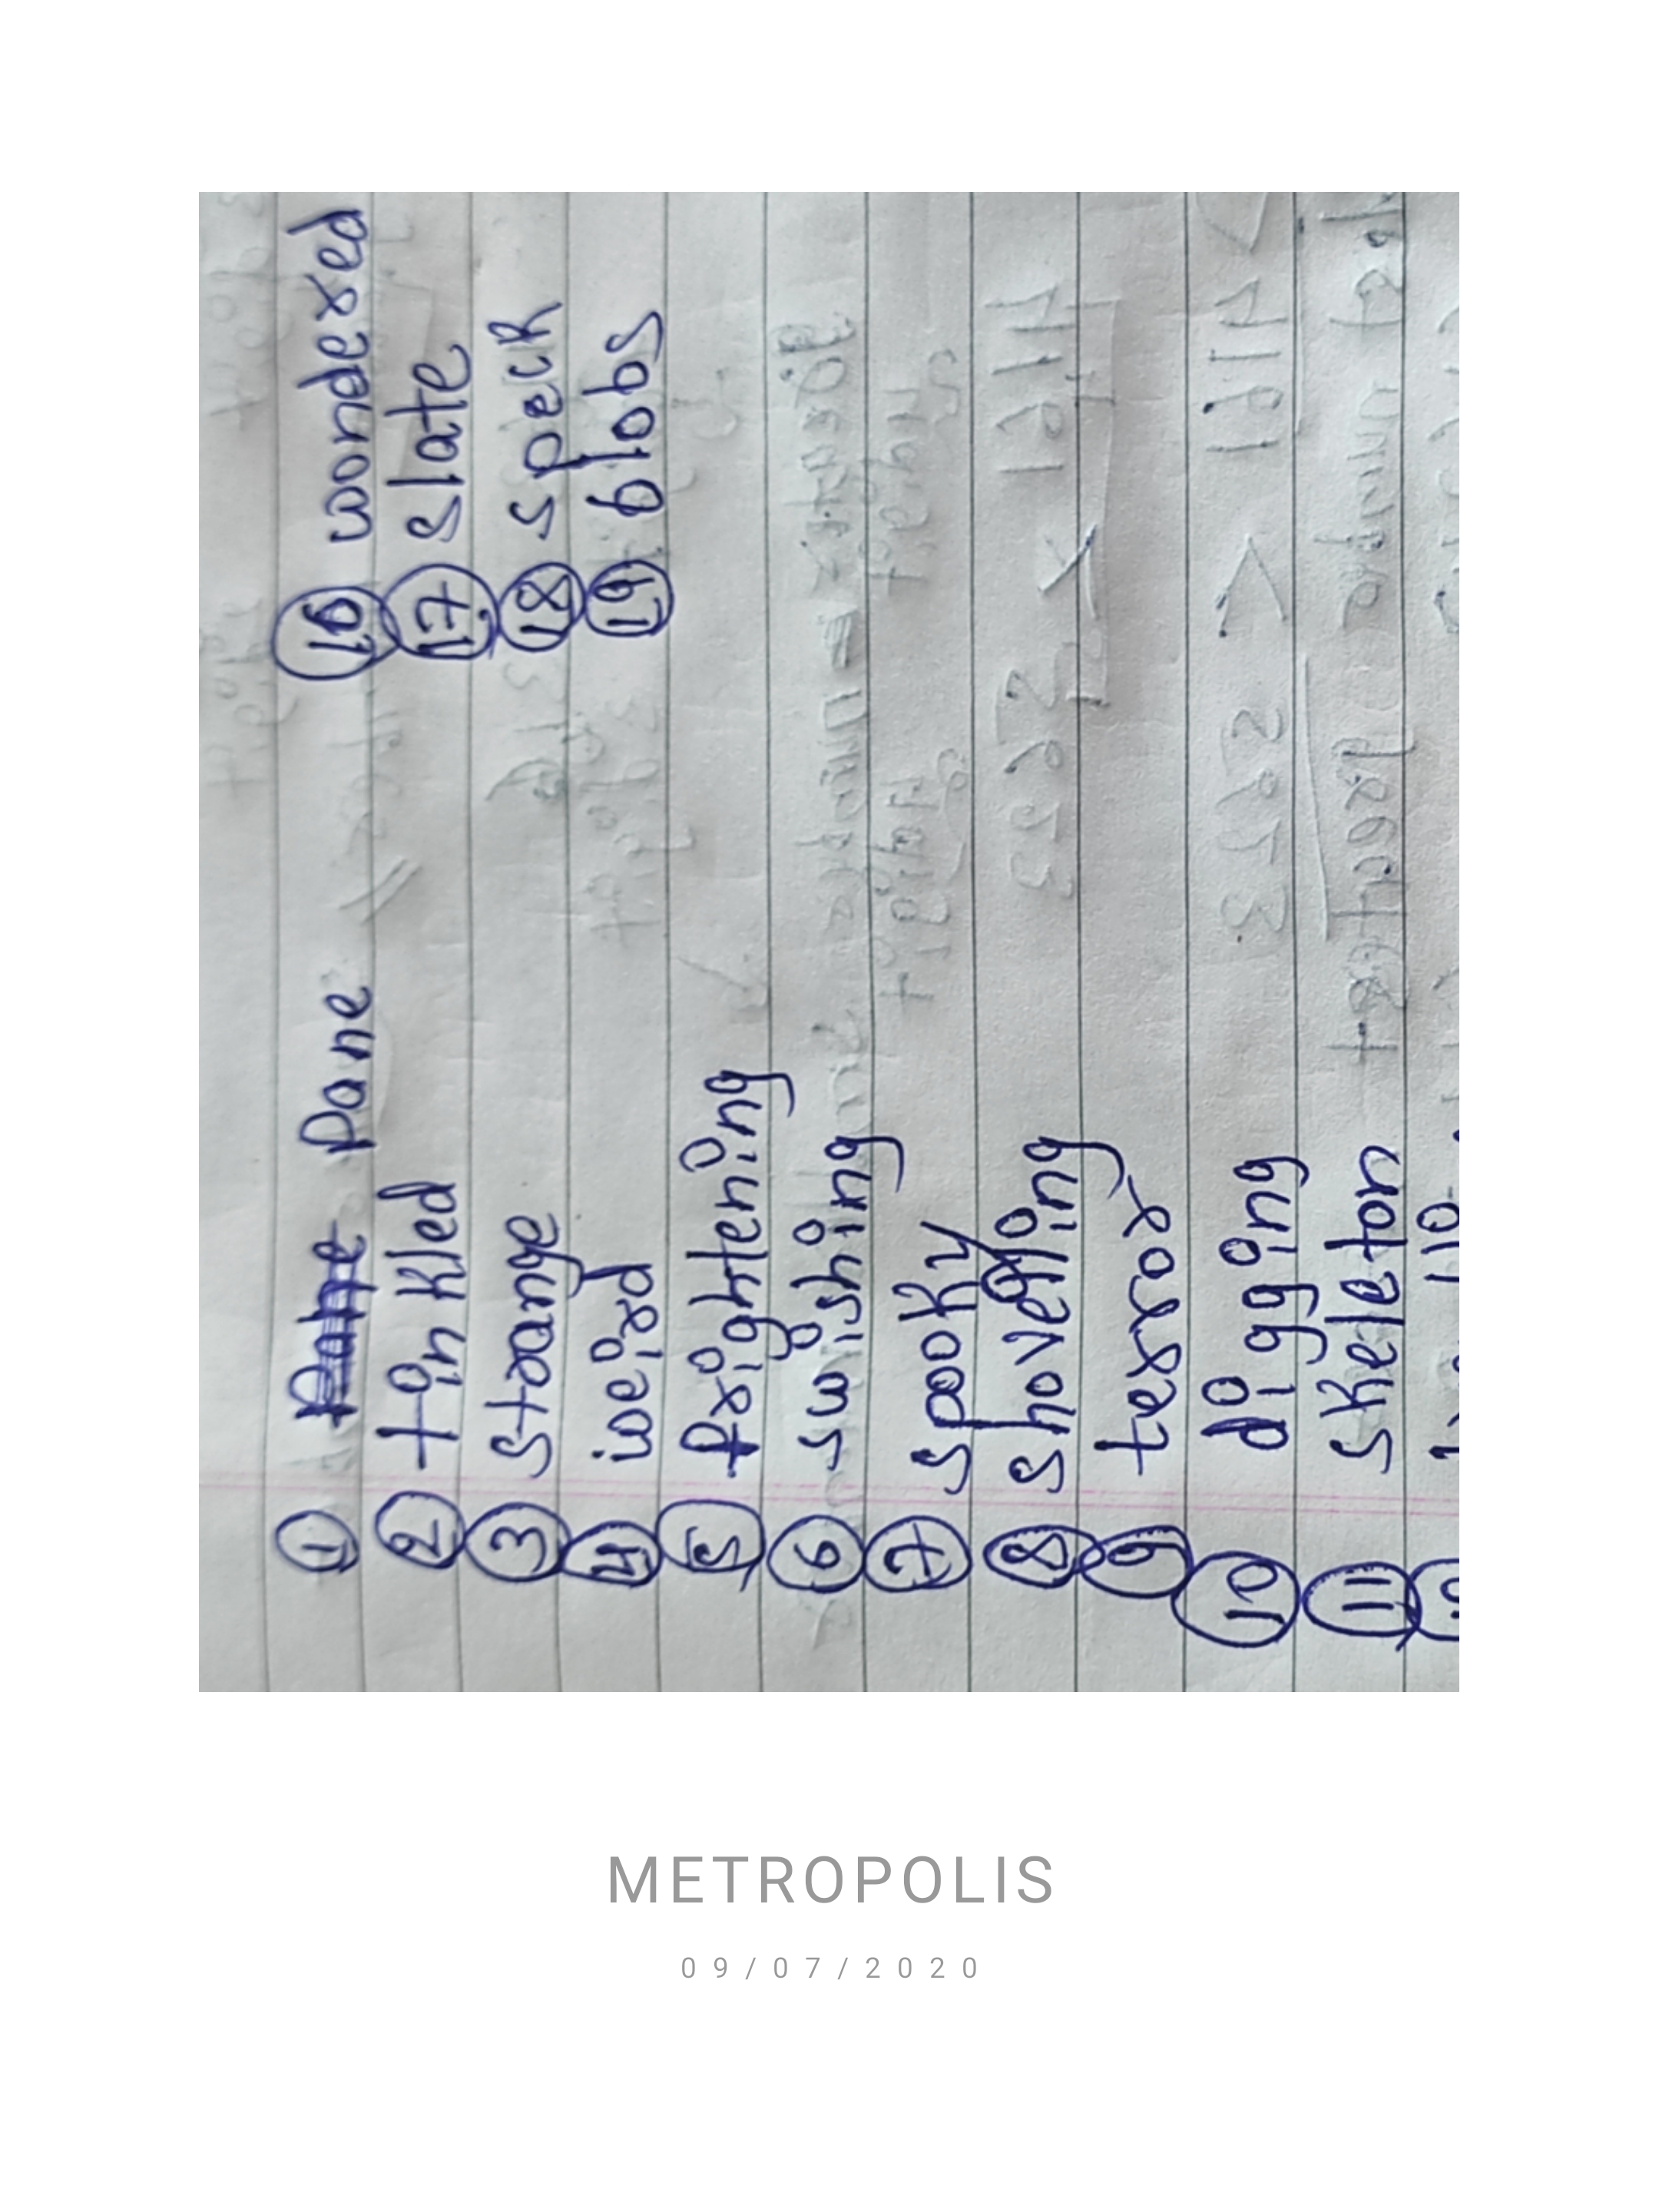 ① Pane
② tinkled
③ strange
④ weird
⑤ frightening
⑥ swishing
⑦ spooky
⑧ shovelling
⑨ terror
⑩ digging
⑪ skeleton
⑯ wondered
⑰ slate
⑱ speck
⑲ blobs
METROPOLIS
09/07/2020